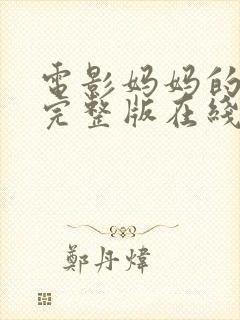 電影妈妈的
完整版在綫
鄭丹煒